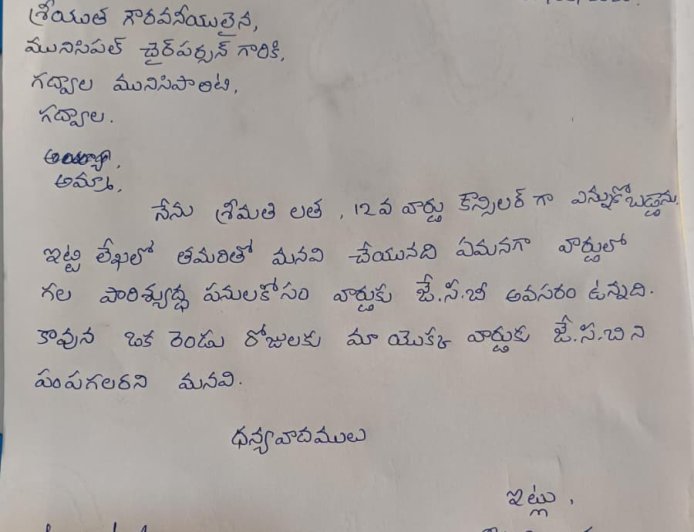 శ్రీయుత గౌరవనీయులైన,
మునిసిపల్ చైర్‌పర్సన్ గారికి,
గద్వాల మునిసిపాలిటి,
గద్వాల.
అమ్మా,
నేను శ్రీమతి లత, 12వ వార్డు కౌన్సిలర్ గా ఎన్నుకోబడ్డాను.
ఇట్టి లేఖలో తమరితో మనవి చేయునది ఏమనగా వార్డులో
గల పారిశ్యుద్ధ పనులకోసం వార్డుకు జే.సి.బీ అవసరం ఉన్నది.
కావున ఒక రెండు రోజులకు మా యొక్క వార్డుకు జే.సి.బి ని
పంపగలరని మనవి.
ధన్యవాదములు
ఇట్లు,